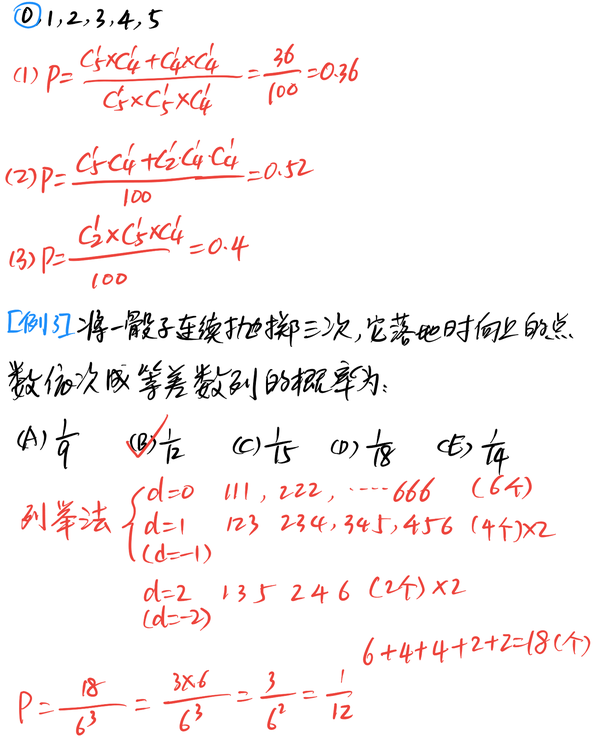 ⓪,1,2,3,4,5
(1) P=(C₅¹×C₄¹+C₄¹×C₄¹)/(C₅¹×C₅¹×C₄¹)=36/100=0.36
(2) P=(C₅¹·C₄¹+C₂¹·C₄¹·C₄¹)/100=0.52
(3) P=(C₂¹×C₅¹×C₄¹)/100=0.4
[例3] 将一骰子连续抛掷三次,它落地时向上的点
数依次成等差数列的概率为:
(A) 1/9 (B) 1/12 (C) 1/15 (D) 1/18 (E) 1/14
列举法 { d=0 111, 222, ····666 (6个)
d=1 123 234, 345, 456 (4个)×2
(d=-1)
d=2 135 246 (2个)×2
(d=-2)
6+4+4+2+2=18(个)
P=18/6³=3×6/6³=3/6²=1/12